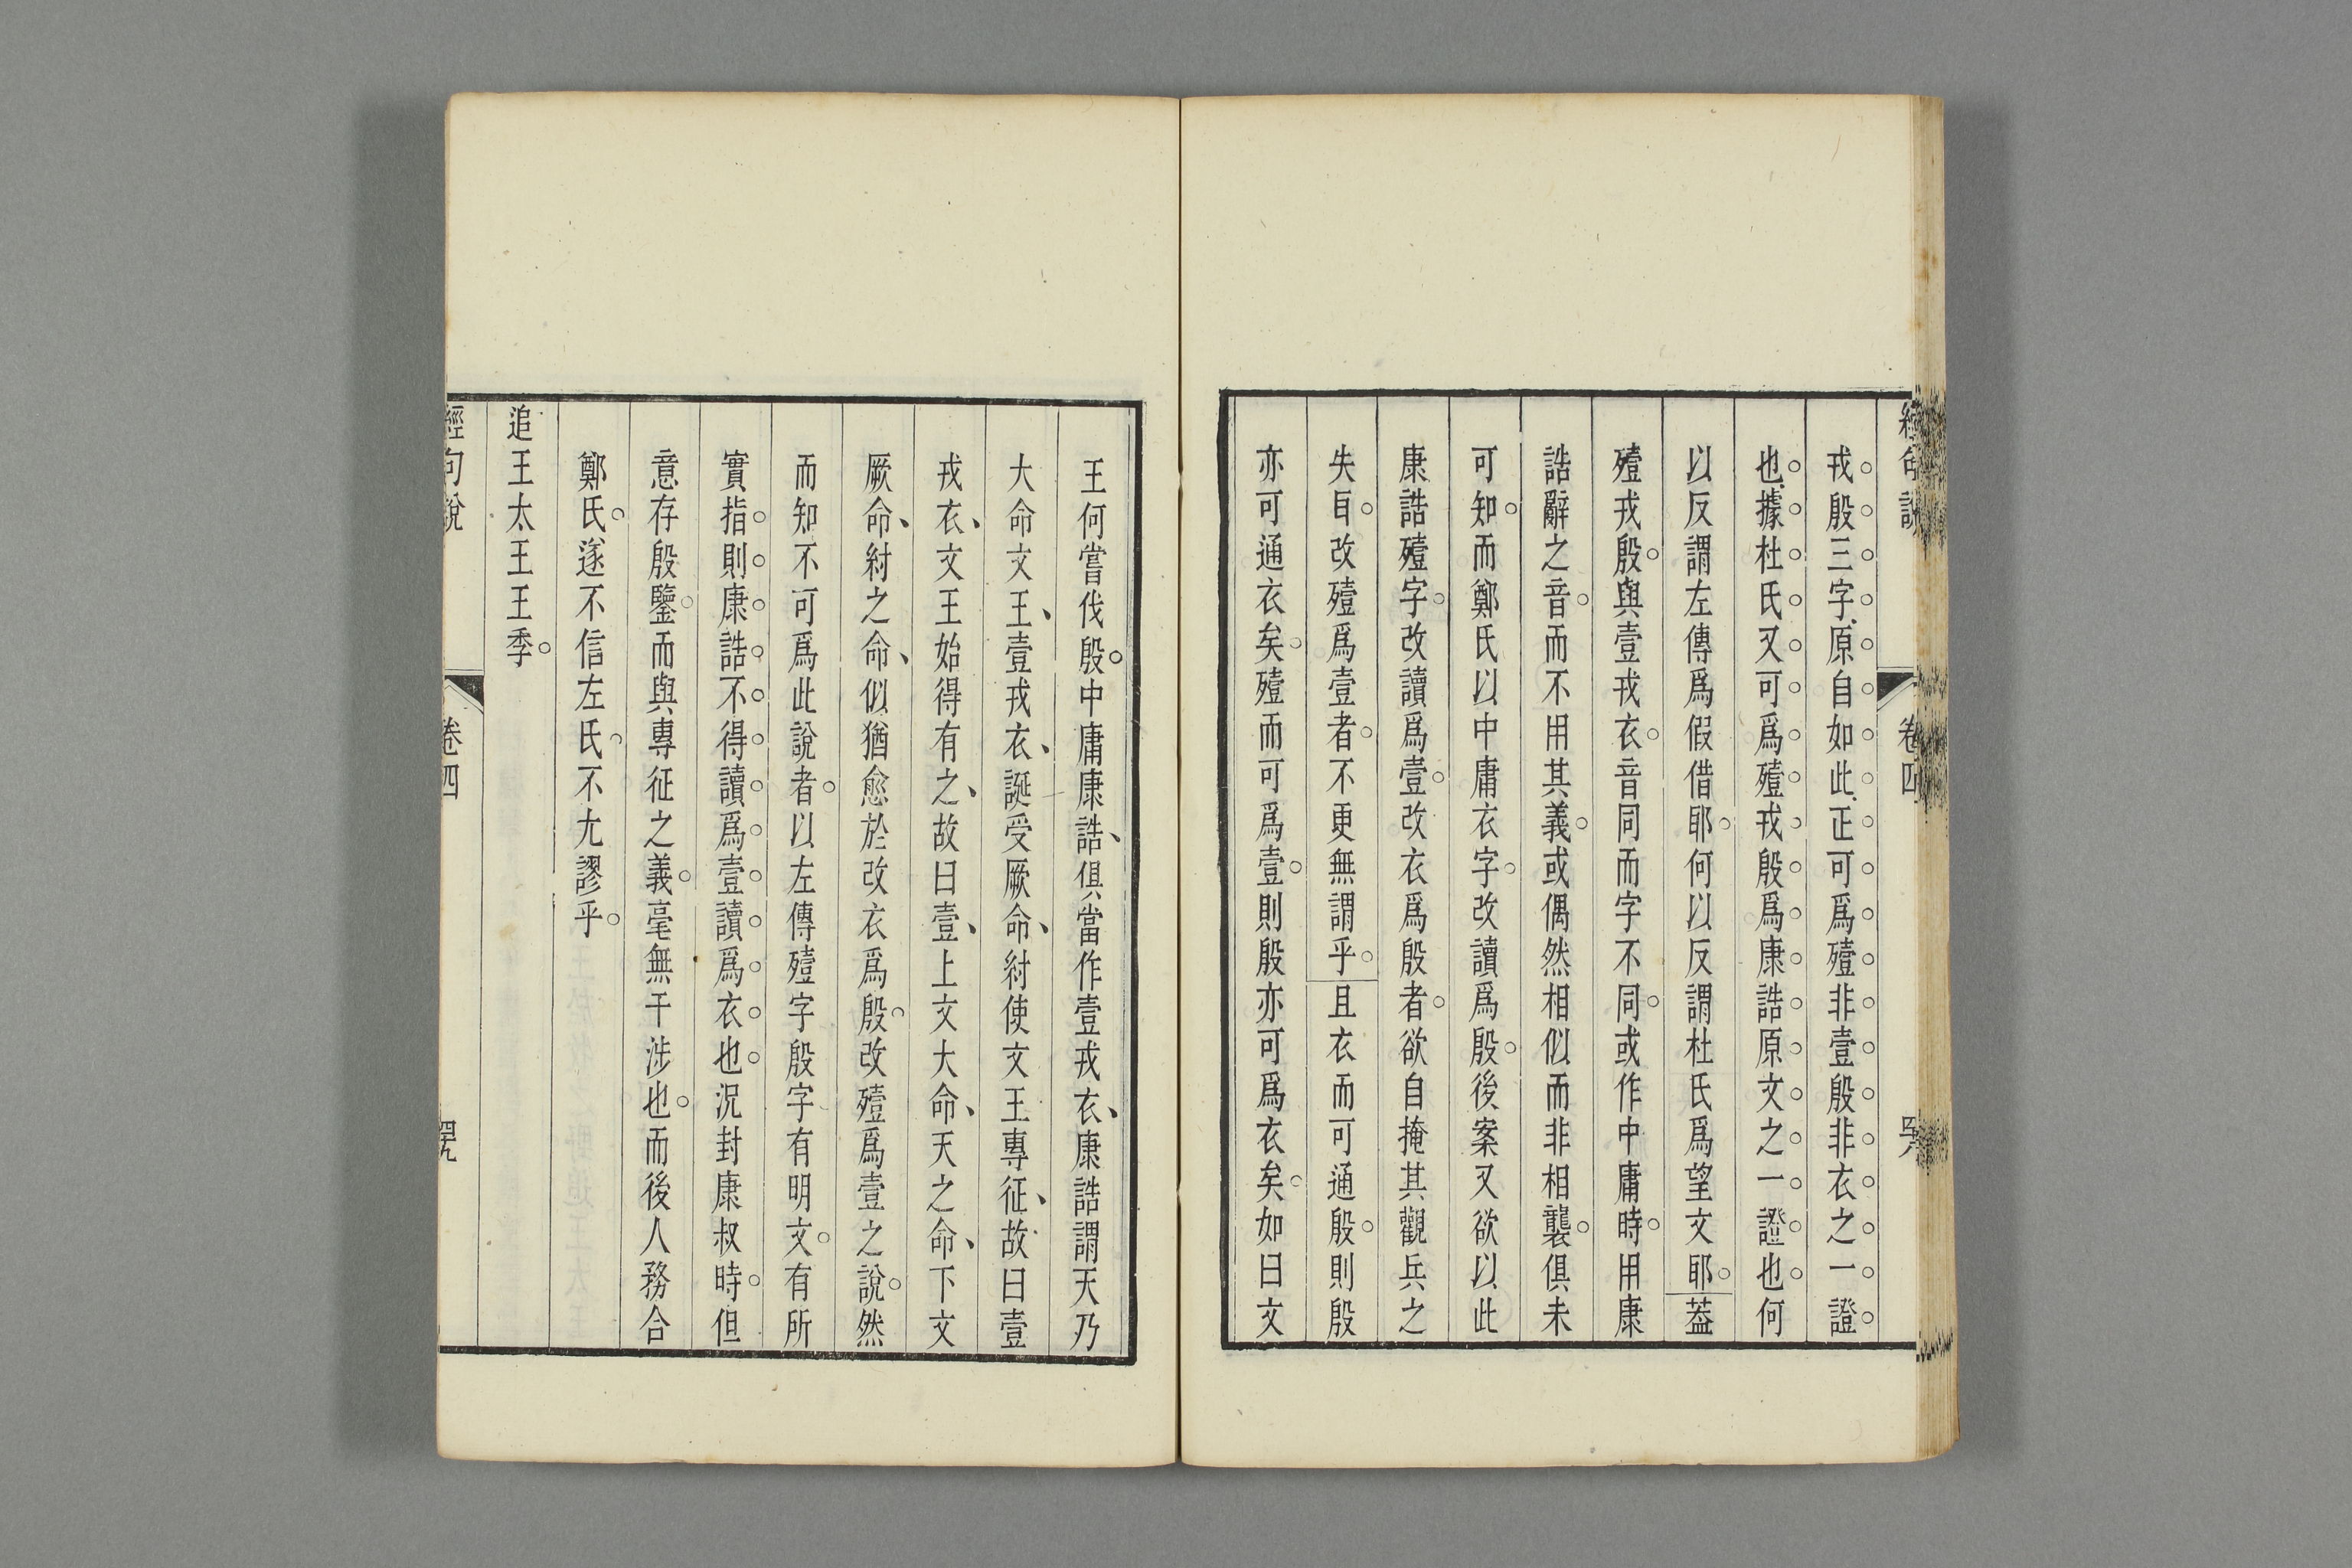 戎殷三字原自如此正可爲殪非壹殷非衣之一證
也據杜氏又可爲殪戎殷爲康誥原文之一證也何
以反謂左傳爲假借耶何以反謂杜氏爲望文耶葢
殪戎殷與壹戎衣音同而字不同或作中庸時用康
誥辭之音而不用其義或偶然相似而非相襲俱未
可知而鄭氏以中庸衣字改讀爲殷後案又欲以此
康誥殪字改讀爲壹改衣爲殷者欲自掩其觀兵之
失㠯改殪爲壹者不更無謂乎且衣而可通殷則殷
亦可通衣矣殪而可爲壹則殷亦可爲衣矣如曰文
王何嘗伐殷中庸康誥俱當作壹戎衣康誥謂天乃
大命文王壹戎衣誕受厥命紂使文王專征故曰壹
戎衣文王始得有之故曰壹上文大命天之命下文
厥命紂之命似猶愈於改衣爲殷改殪爲壹之說然
而知不可爲此說者以左傳殪字殷字有明文有所
實指則康誥不得讀爲壹讀爲衣也況封康叔時但
意存殷鑒而與專征之義毫無干涉也而後人務合
鄭氏遂不信左氏不尤謬乎
追王太王王季
經句說
卷四